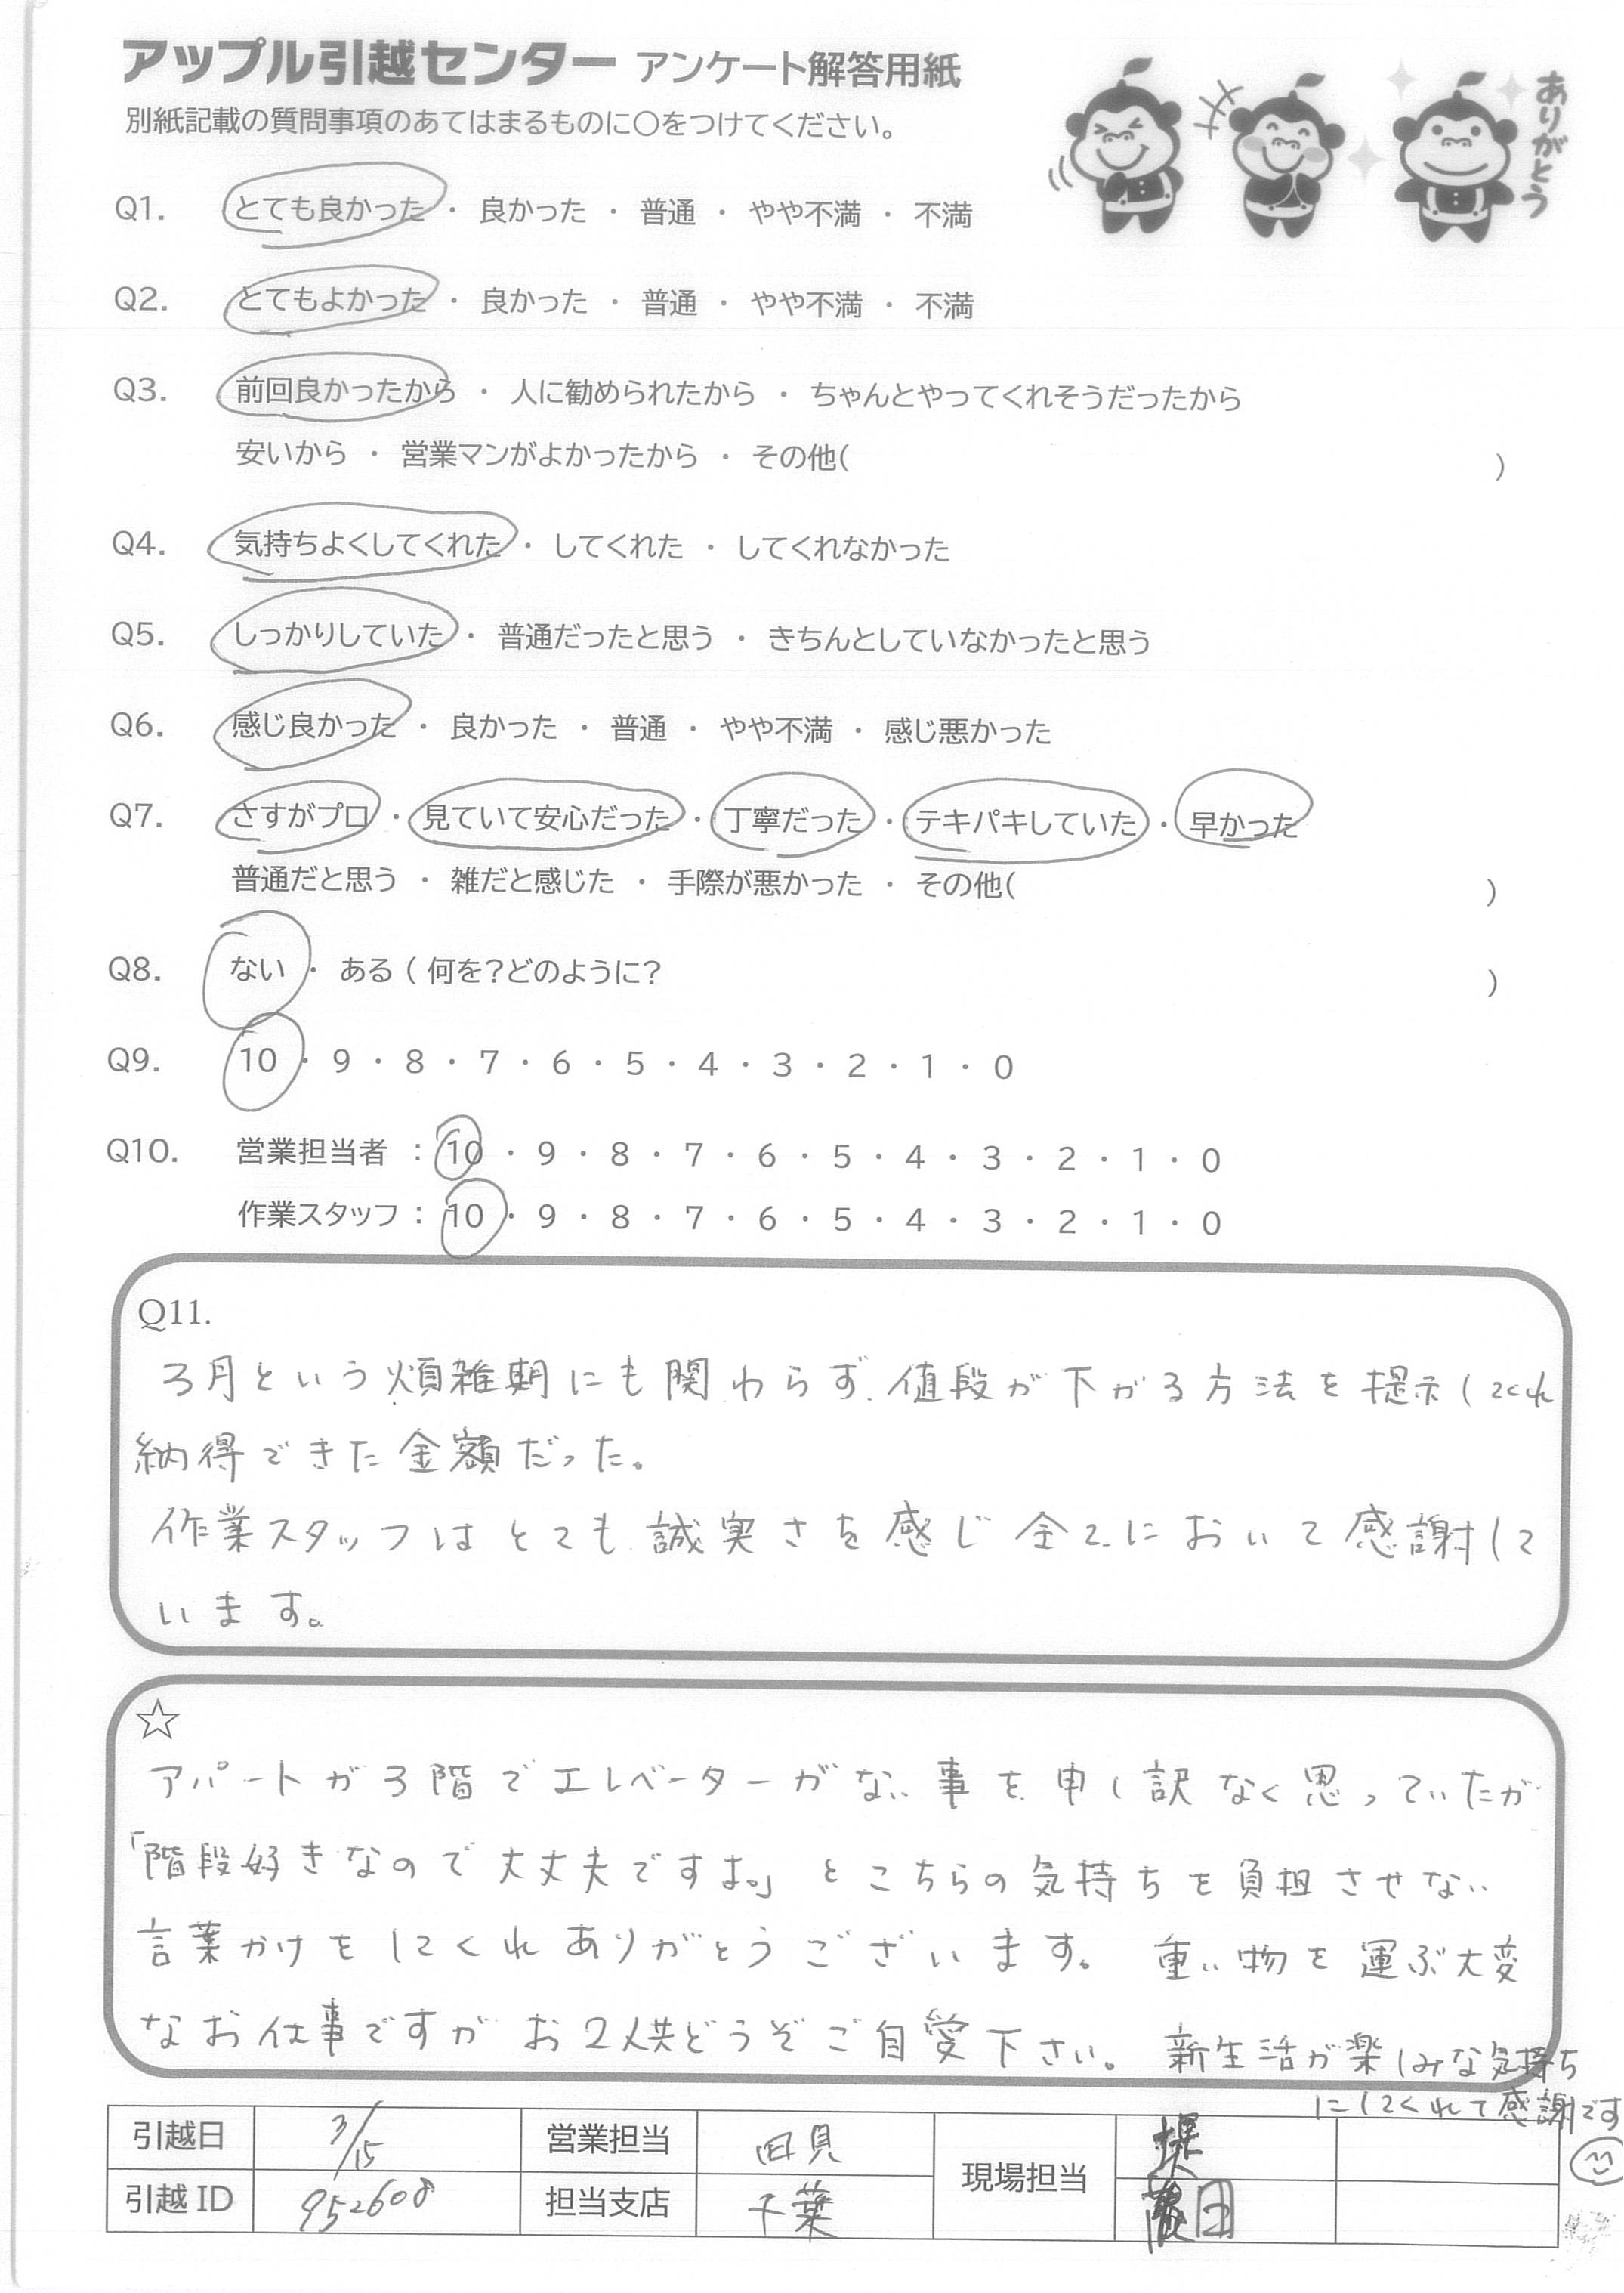 アップル引越センター アンケート解答用紙
別紙記載の質問事項のあてはまるものに〇をつけてください。
ありがとう
Q1. とても良かった ・ 良かった ・ 普通 ・ やや不満 ・ 不満
Q2. とてもよかった ・ 良かった ・ 普通 ・ やや不満 ・ 不満
Q3. 前回良かったから ・ 人に勧められたから ・ ちゃんとやってくれそうだったから
安いから ・ 営業マンがよかったから ・ その他( )
Q4. 気持ちよくしてくれた ・ してくれた ・ してくれなかった
Q5. しっかりしていた ・ 普通だったと思う ・ きちんとしていなかったと思う
Q6. 感じ良かった ・ 良かった ・ 普通 ・ やや不満 ・ 感じ悪かった
Q7. さすがプロ ・ 見ていて安心だった ・ 丁寧だった ・ テキパキしていた ・ 早かった
普通だと思う ・ 雑だと感じた ・ 手際が悪かった ・ その他( )
Q8. ない ・ ある ( 何を?どのように? )
Q9. 10 ・ 9 ・ 8 ・ 7 ・ 6 ・ 5 ・ 4 ・ 3 ・ 2 ・ 1 ・ 0
Q10. 営業担当者 : 10 ・ 9 ・ 8 ・ 7 ・ 6 ・ 5 ・ 4 ・ 3 ・ 2 ・ 1 ・ 0
作業スタッフ : 10 ・ 9 ・ 8 ・ 7 ・ 6 ・ 5 ・ 4 ・ 3 ・ 2 ・ 1 ・ 0
Q11.
3月という煩雑期にも関わらず、値段が下がる方法を提示してくれ
納得できた金額だった。
作業スタッフはとても誠実さを感じ全てにおいて感謝して
います。
☆
アパートが3階でエレベーターがない事を申し訳なく思っていたが
「階段好きなので大丈夫ですよ。」とこちらの気持ちを負担させない
言葉かけをしてくれありがとうございます。 重い物を運ぶ大変
なお仕事ですがお2人共どうぞご自愛下さい。 新生活が楽しみな気持ち
にしてくれて感謝です
引越日 3/15 営業担当 現場担当 堀
引越ID 952608 担当支店 千葉